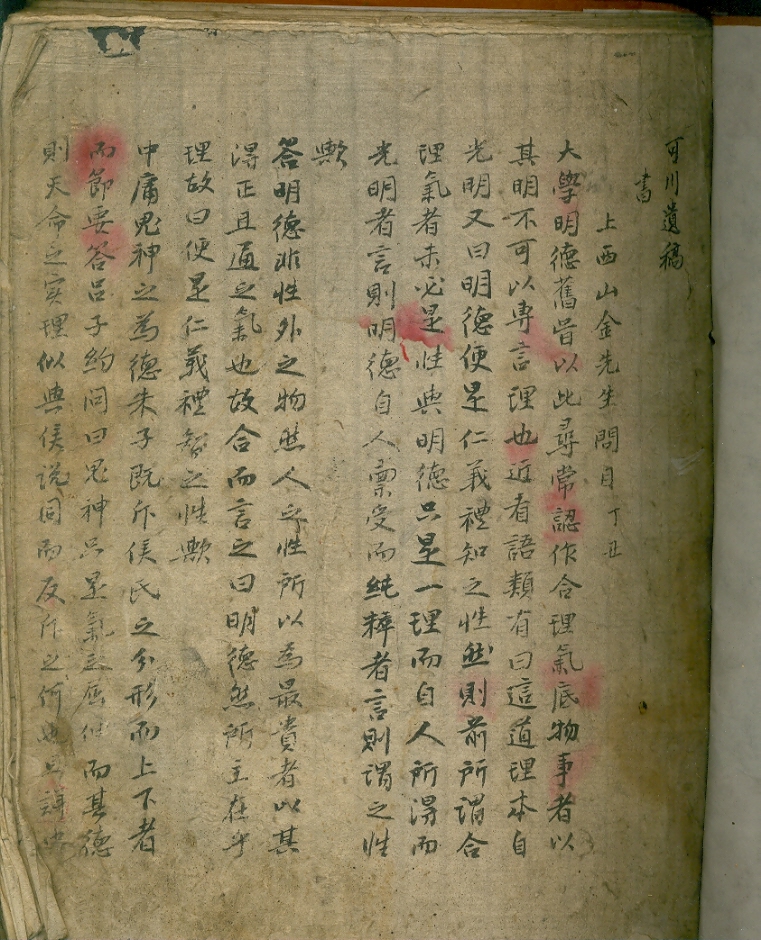 可川遺稿
書
上西山金先生問目 丁丑
大學明德舊嘗以此尋常認作合理氣底物事者以
其明不可以專言理也近看語類有曰這道理本自
光明又曰明德便是仁義禮知之性然則前所謂合
理氣者未必是性與明德只是一理而自人所得而
光明者言則明德自人稟受而純粹者言則謂之性
歟
答明德非性外之物然人之性所以為最貴者以其
得正且通之氣也故合而言之曰明德然所主在乎
理故曰便是仁義禮智之性歟
中庸鬼神之為德朱子既斥侯氏之分形而上下者
而節要答呂子約問曰鬼神只是氣之屈伸而其德
則天命之實理似與侯說同而反斥之何也